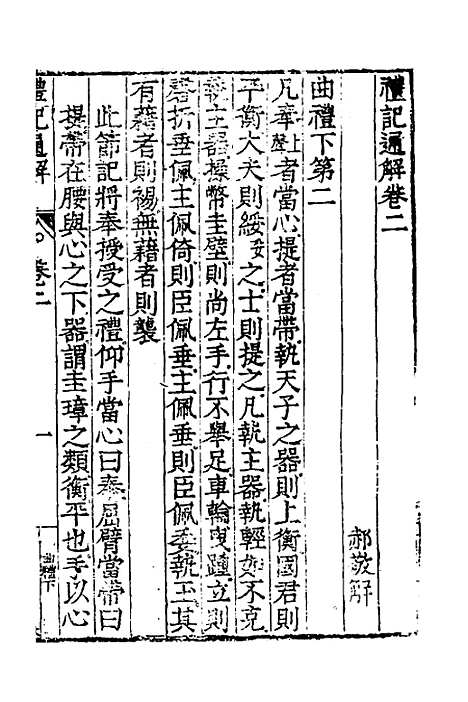 禮記通解卷二
郝敬解
曲禮下第二
凡奉上聲者當心提者當帶執天子之器則上衡國君則
平衡大夫則綏妥之士則提之凡執主器執輕如不克
執主器操幣圭璧則尚左手行不舉足車輪曳踵立則
磬折垂佩主佩倚則臣佩垂主佩垂則臣佩委執玉其
有藉者則裼無藉者則襲
此節記將奉授受之禮仰手當心曰奉屈臂當帶曰
提帶在腰與心之下器謂圭璋之類衡平也手以心
禮記通解
卷二
一
曲禮下